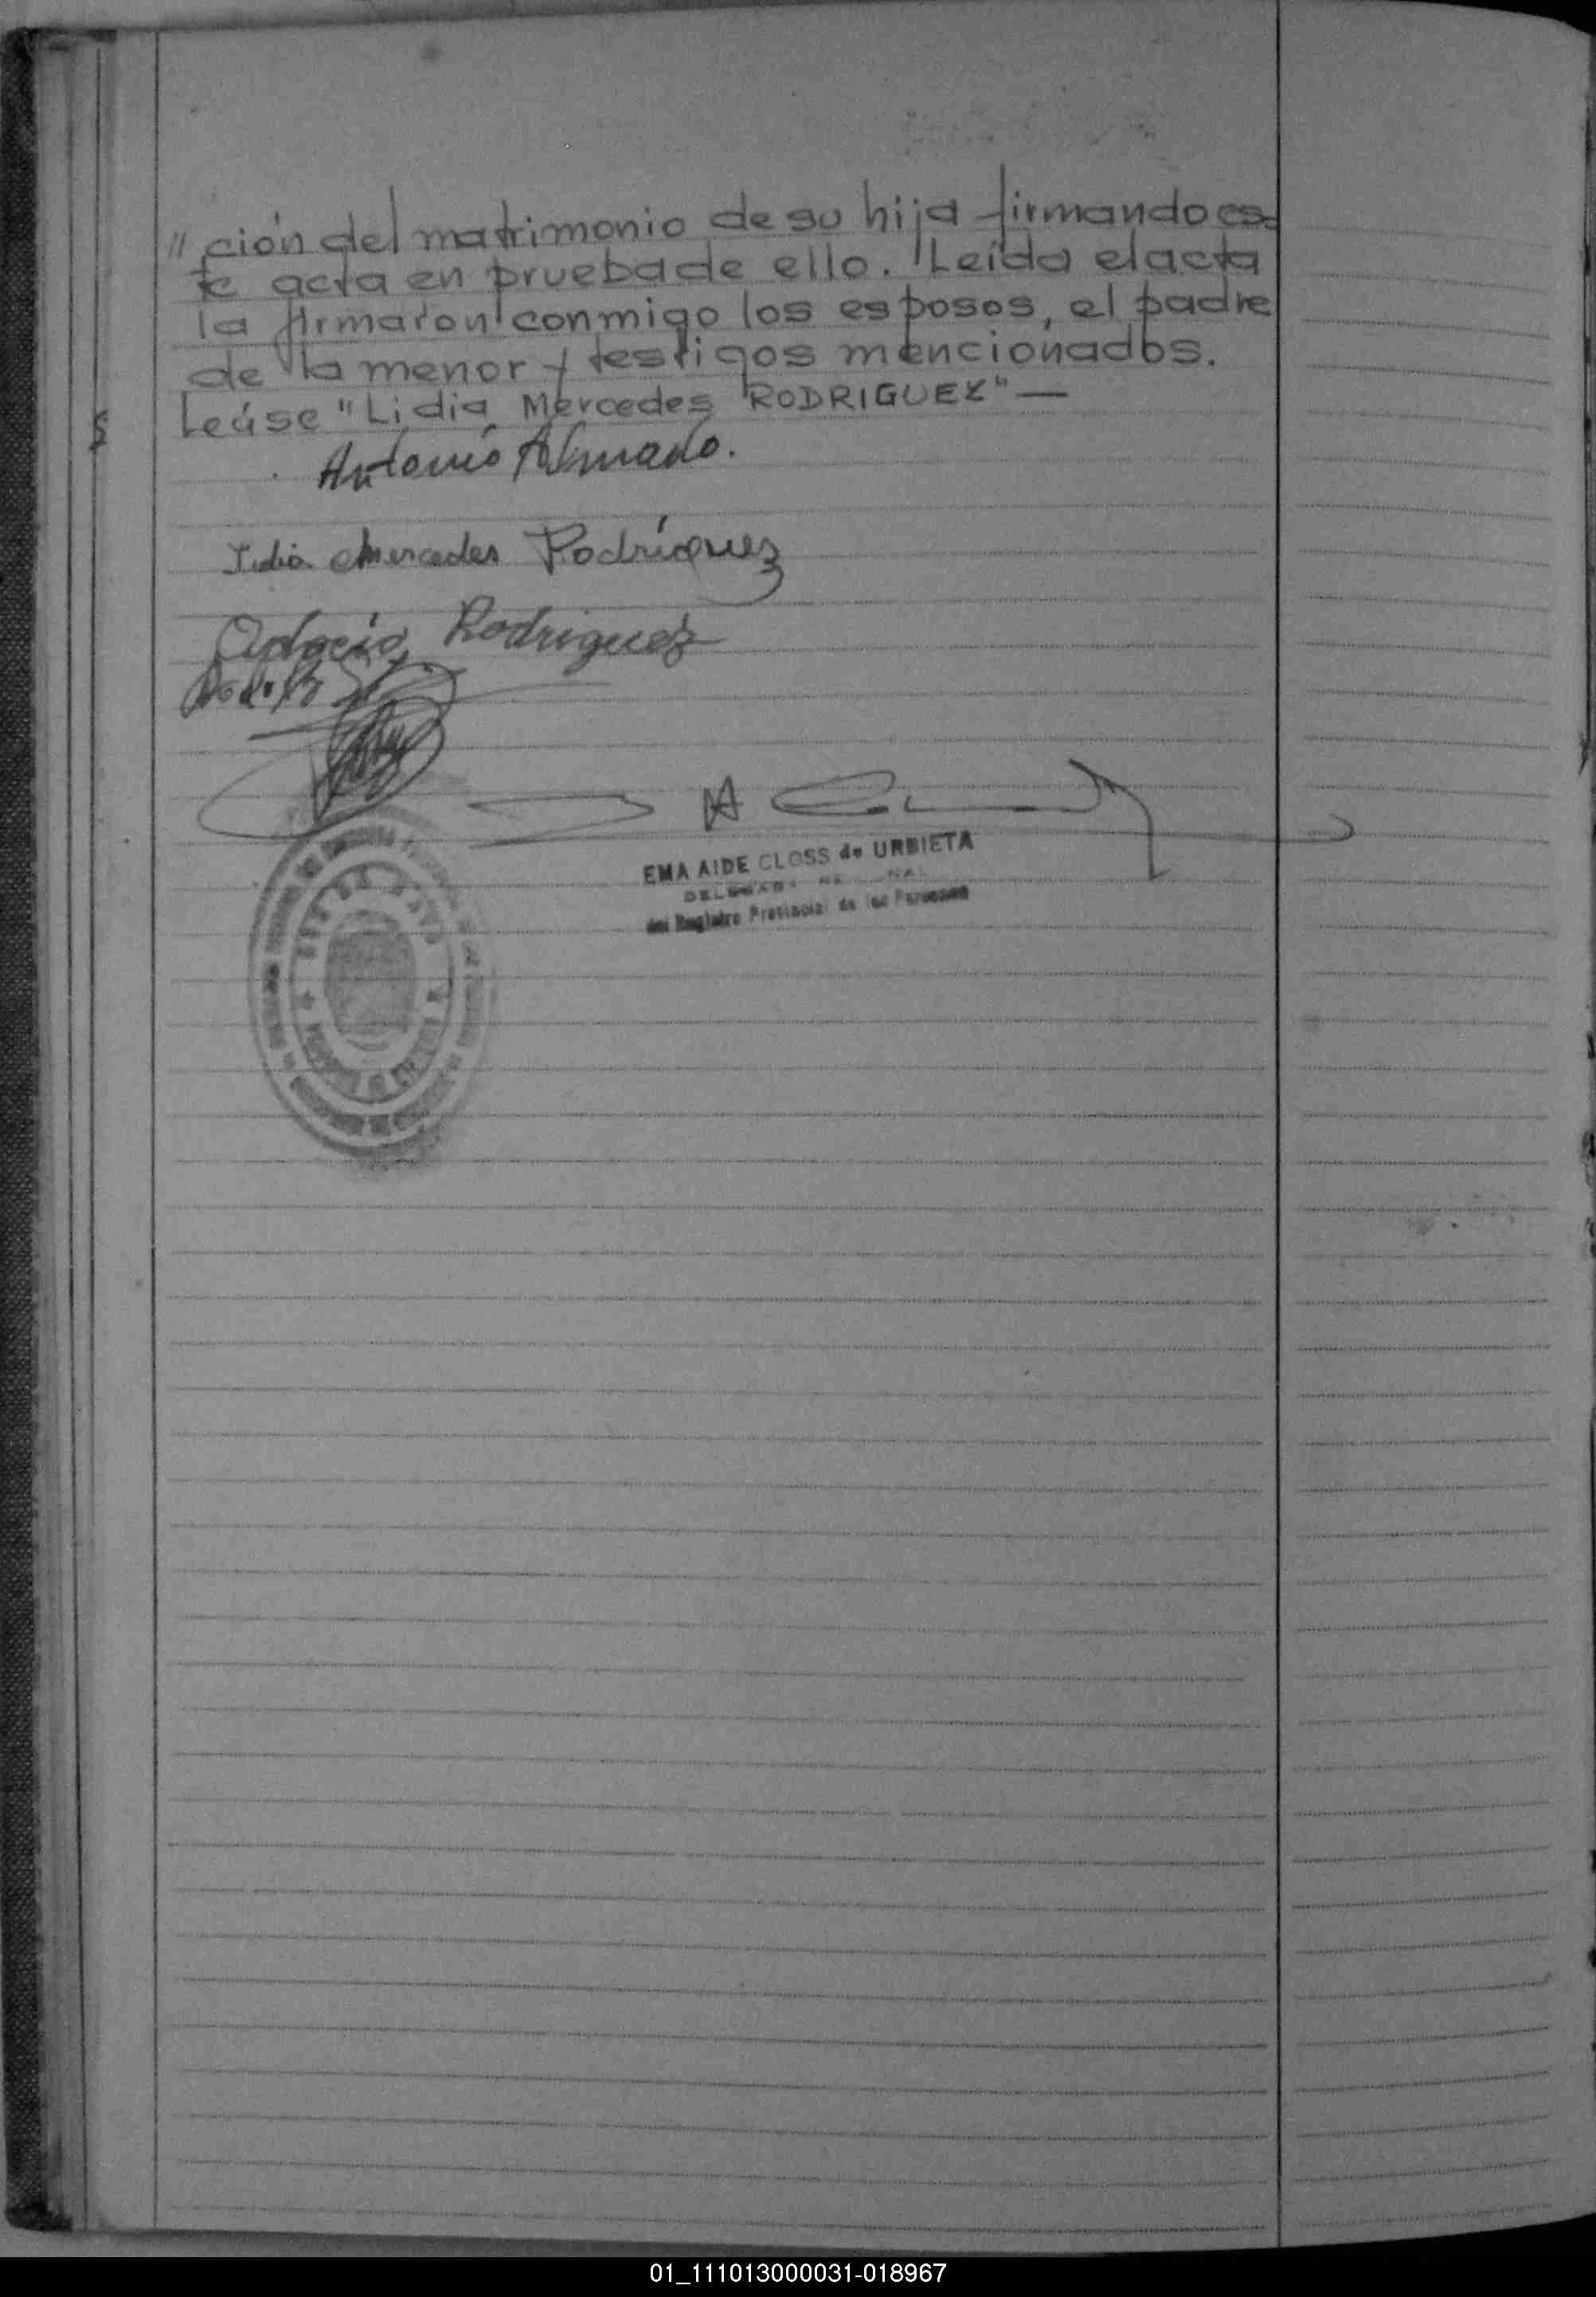 " ción del matrimonio de su hija firmando es-
te acta en prueba de ello. Leída el acta
la firmaron conmigo los esposos, el padre
de la menor y testigos mencionados.
Leáse "Lidia Mercedes RODRIGUEZ" —
Antonio
Lidia Mercedes Rodríguez
Rodriguez
EMA AIDE CLOSS de URBIETA
del Registro Provincial de las Personas
01_111013000031-018967